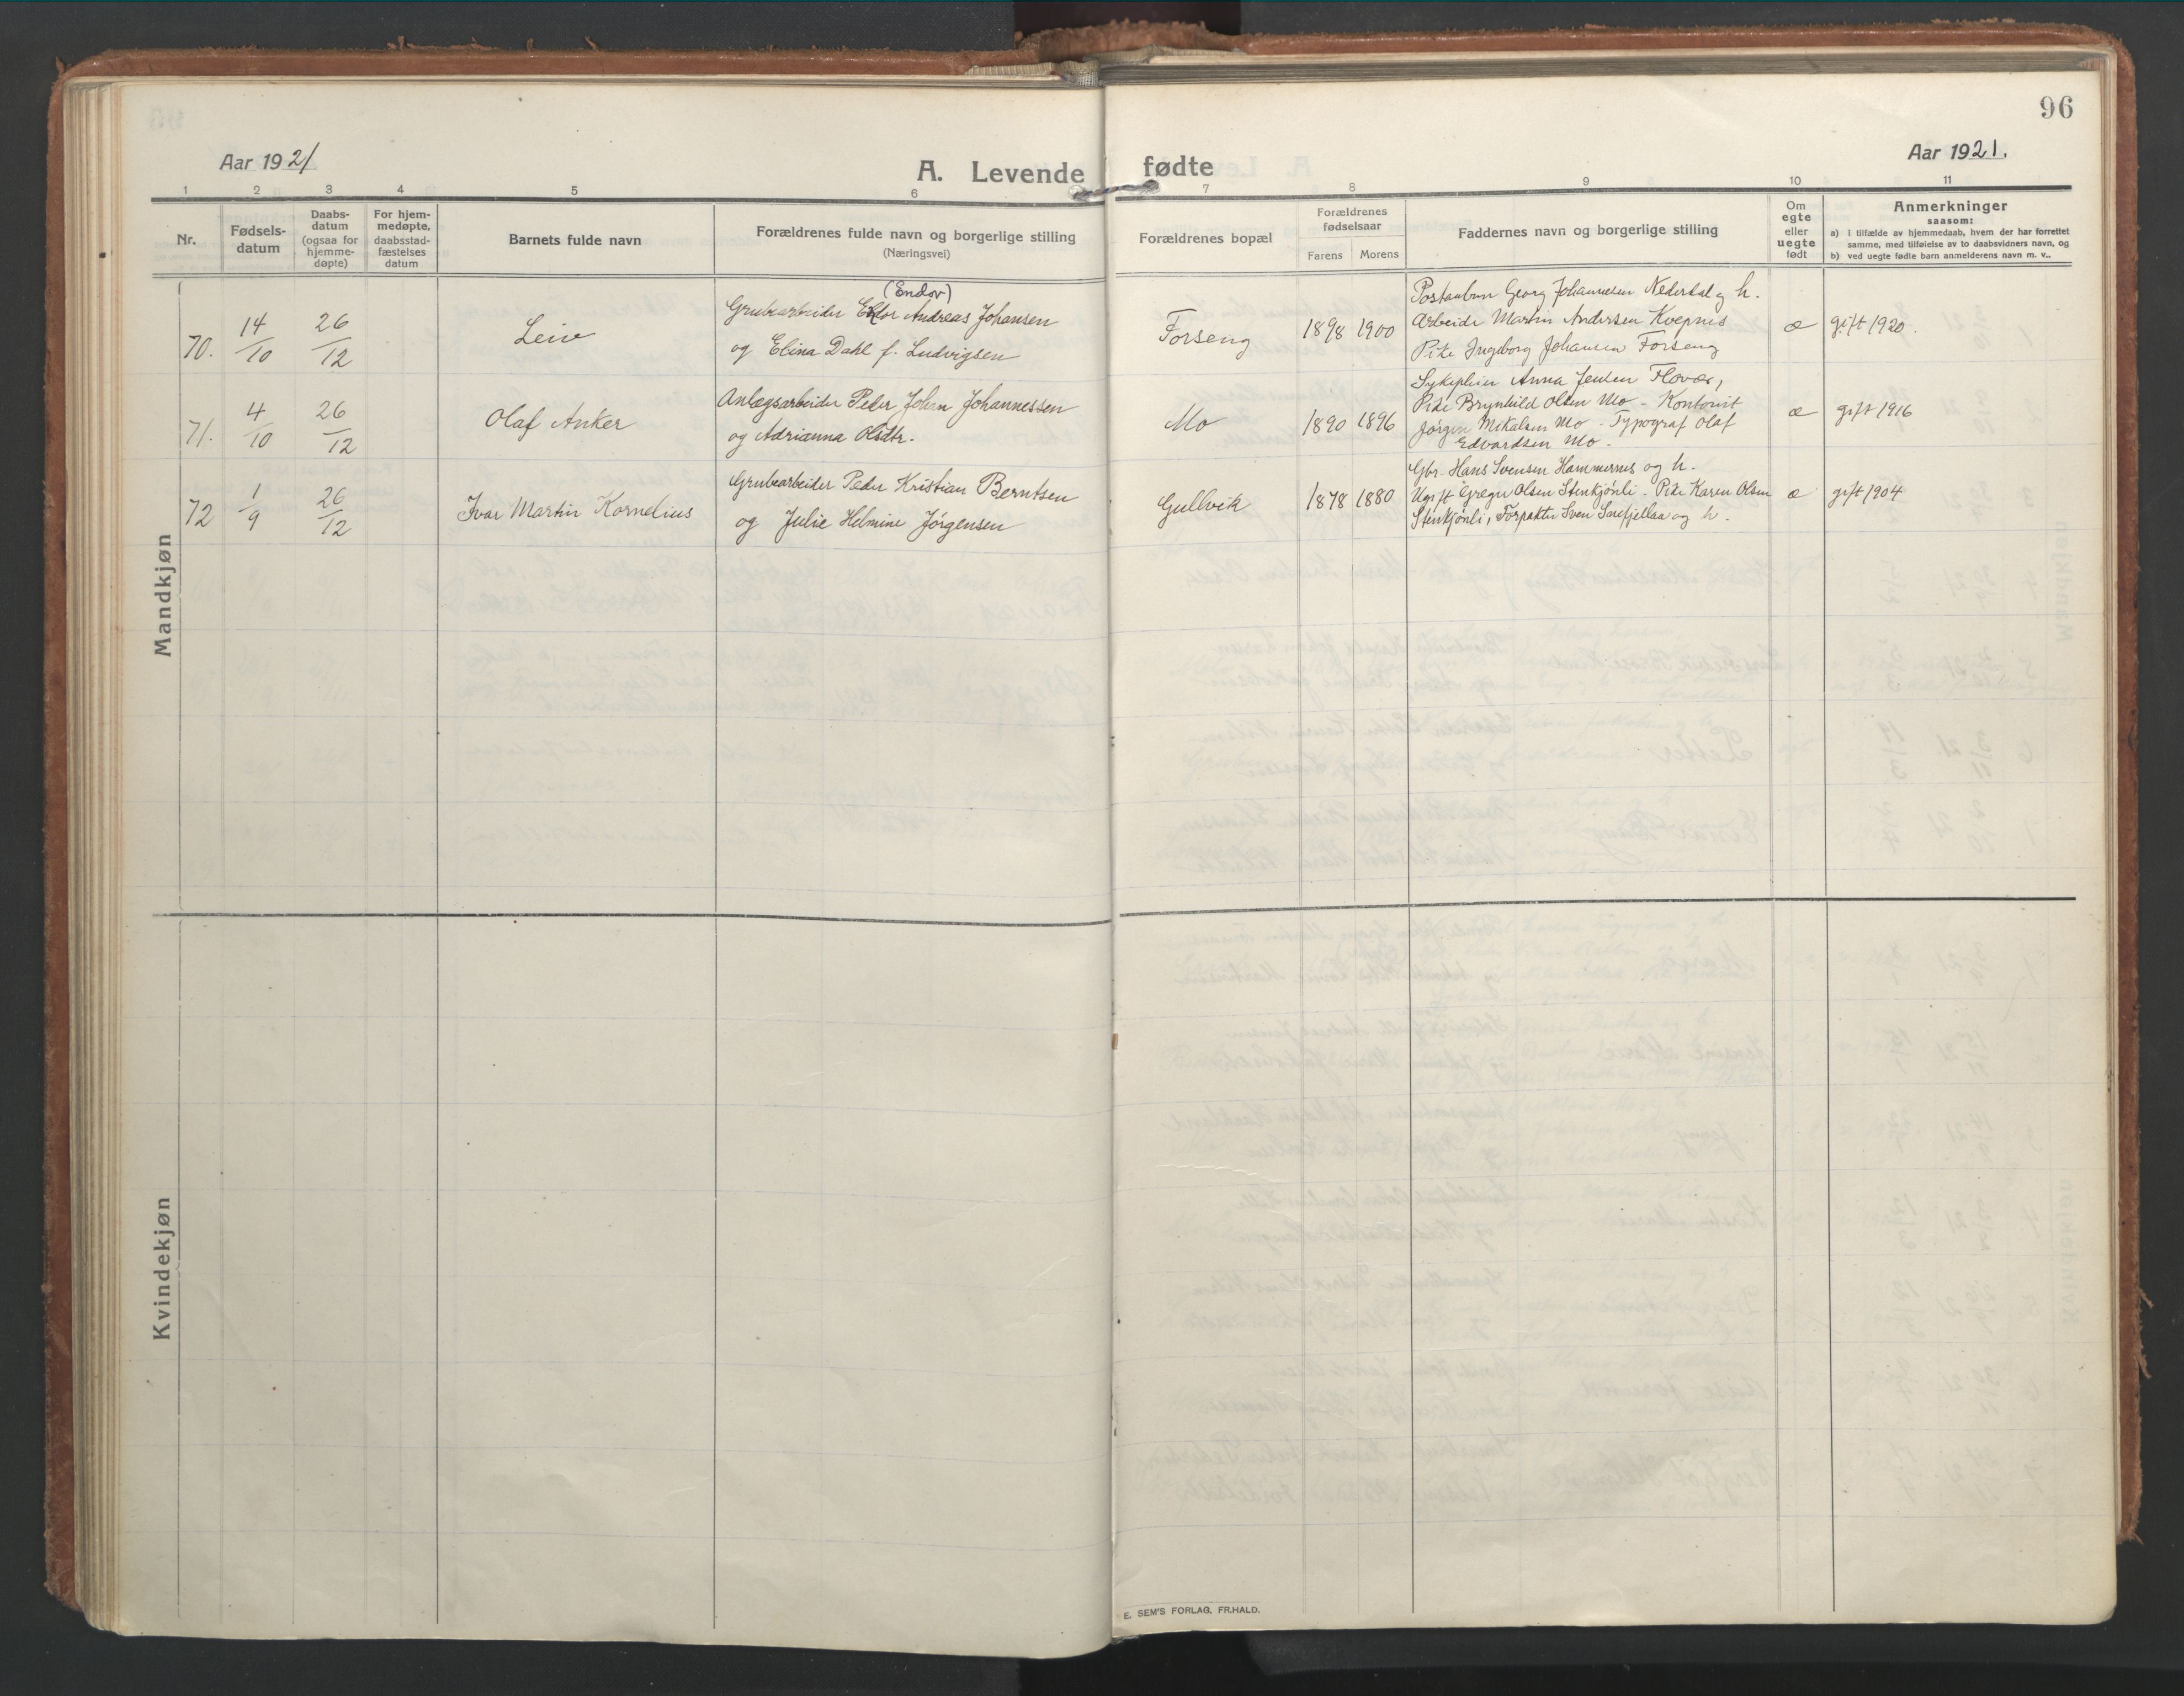 96
Aar 1921
A. Levende fødte
Aar 1921.
1 2 3 4 5 6 7 8 9 10 11
Nr.
Fødsels-
datum
Daabs-
datum
(ogsaa for
hjemme-
døpte)
For hjem-
medøpte,
daabsstad-
fæstelses
datum
Barnets fulde navn
Forældrenes fulde navn og borgerlige stilling
(Næringsvei)
Forældrenes bopæl
Forældrenes
fødselsaar
Farens Morens
Faddernes navn og borgerlige stilling
Om
egte
eller
uegte
født
Anmerkninger
saasom:
a) i tilfælde av hjemmedaab, hvem der har forrettet
samme, med tilføielse av to daabsvidners navn, og
b) ved uegte fødte barn anmelderens navn m. v..
Mandkjøn
70. 14/10 26/12 Leiv
(Endor)
Grubearbeider Andreas Johansen
og Elina Dahl f. Ludvigsen
Forseng 1898 1900
Georg Johannesen Nederdal og h.
Arbeider Martin Andersen Kvepnes
Pike Ingeborg Johansen Forseng
æ gift 1920.
71. 4/10 26/12 Olaf Anker
Anlægsarbeider Peder Johan Johannessen
og Adrianna Olsdtr.
Mo 1890 1896
Sykepleier Anna Jensen Flovær,
Pike Brynhild Olsen Mo - Kontorist
Jørgen Mikalsen Mo - Typograf Olaf
Edvardsen Mo.
æ gift 1916
72 1/9 26/12 Ivar Martin Kornelius
Grubearbeider Peder Kristian Berntsen
og Julie Helmine Jørgensen
Gullvik 1878 1880
Gbr. Hans Svensen Hammernes og h.
Ugift Greger Olsen Stenkjønli - Pike Karen Olsen
Stenkjønli, Forpakter Sven Snefjellaa og h.
æ gift 1904
Kvindekjøn
E. SEM'S FORLAG, FR.HALD.